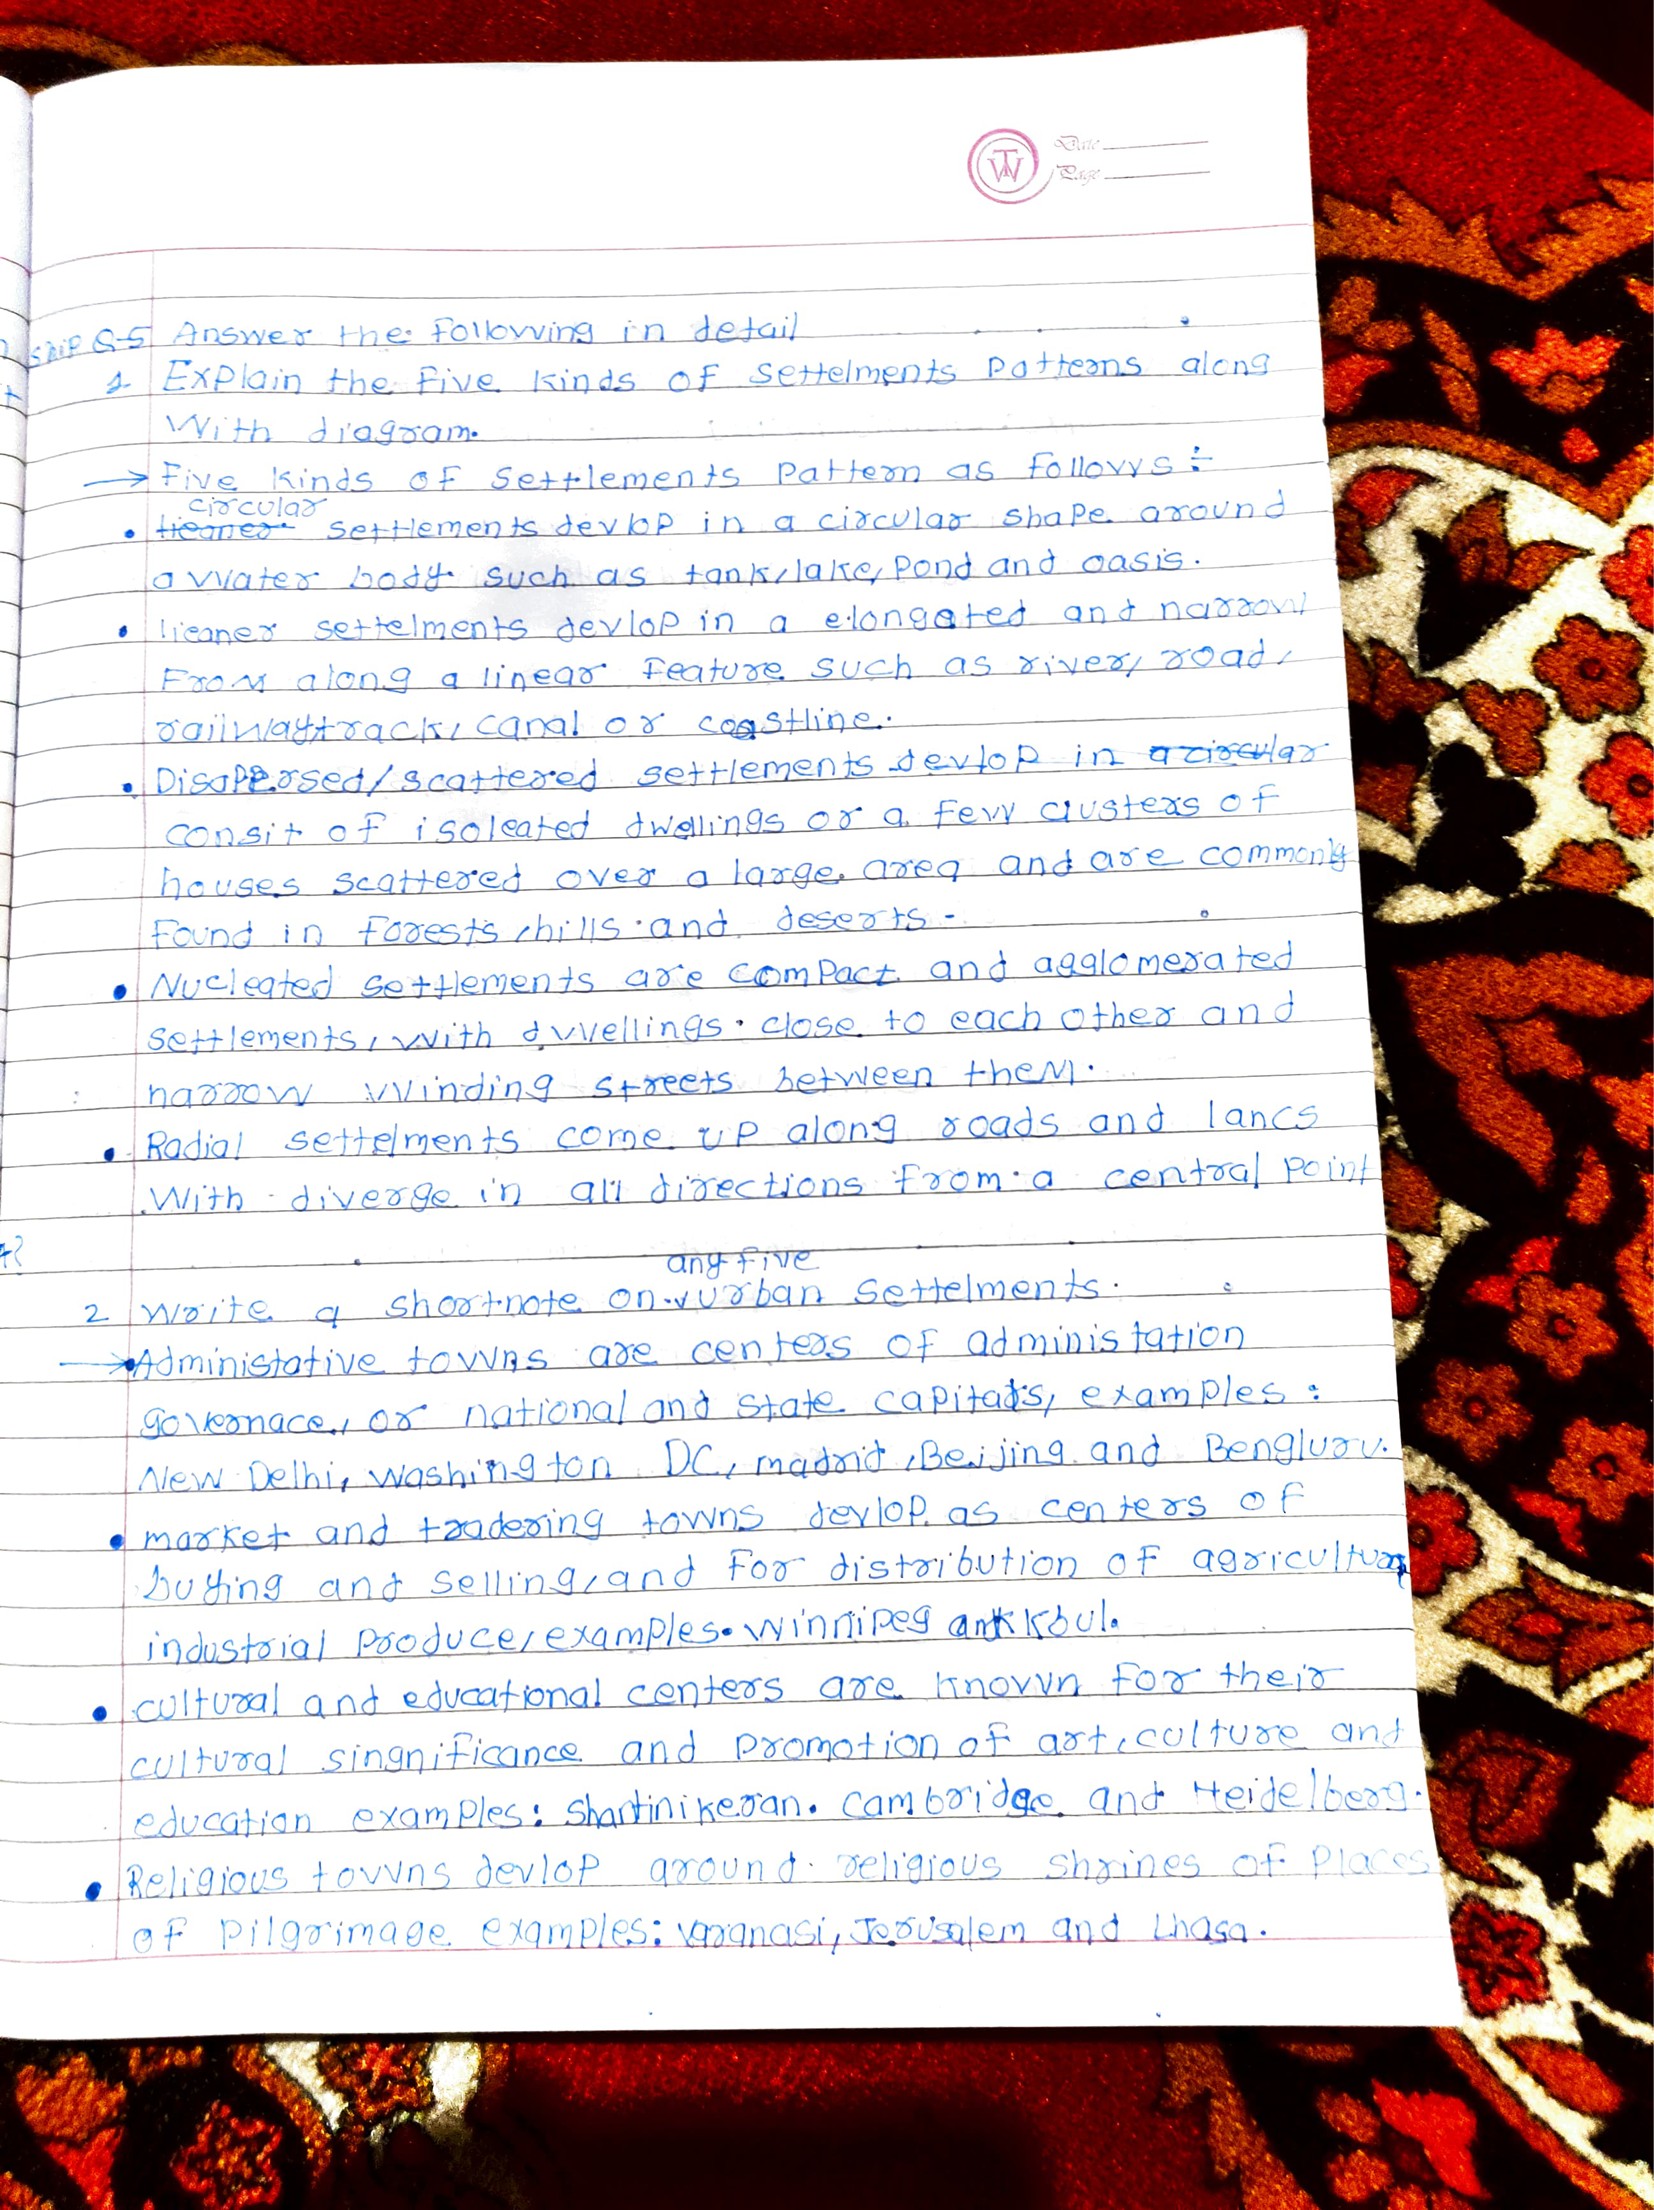 Date
Page
TW
ship Q-5 Answer the following in detail
1 Explain the five kinds of settelments patterns along
With diagram.
→ Five kinds of settlements pattern as follows :-
circular
• lieaner settlements devlop in a circular shape around
a water body such as tank, lake, pond and oasis.
• lieaner settelments devlop in a elongated and narrow
From along a linear feature such as river, road,
railwaytrack, canal or coastline.
• Disappersed/scattered settlements devlop in a circular
consit of isoleated dwellings or a few clusters of
houses scattered over a large area and are commonly
found in forests, hills and deserts.
• Nucleated settlements are compact and agglomerated
settlements, with dwellings close to each other and
narrow winding streets between them.
• Radial settelments come up along roads and lancs
With diverge in all directions from a central point
any five
2 Write a short note on urban settelments.
→ • Administative towns are centers of administation
governace, or national and state capitals, examples :
New Delhi, Washington DC, madrid, Beijing and Bengluru.
• market and tradering towns devlop as centers of
buying and selling, and for distribution of agricultur
industrial produce, examples. Winnipeg
• cultural and educational centers are known for their
cultural singnificance and promotion of art, culture and
education examples: Shantinikeran. Cambridge and Heidelberg.
• Religious towns devlop around religious shrines of places
of pilgrimage examples: Varanasi, Jerusalem and Lhasa.